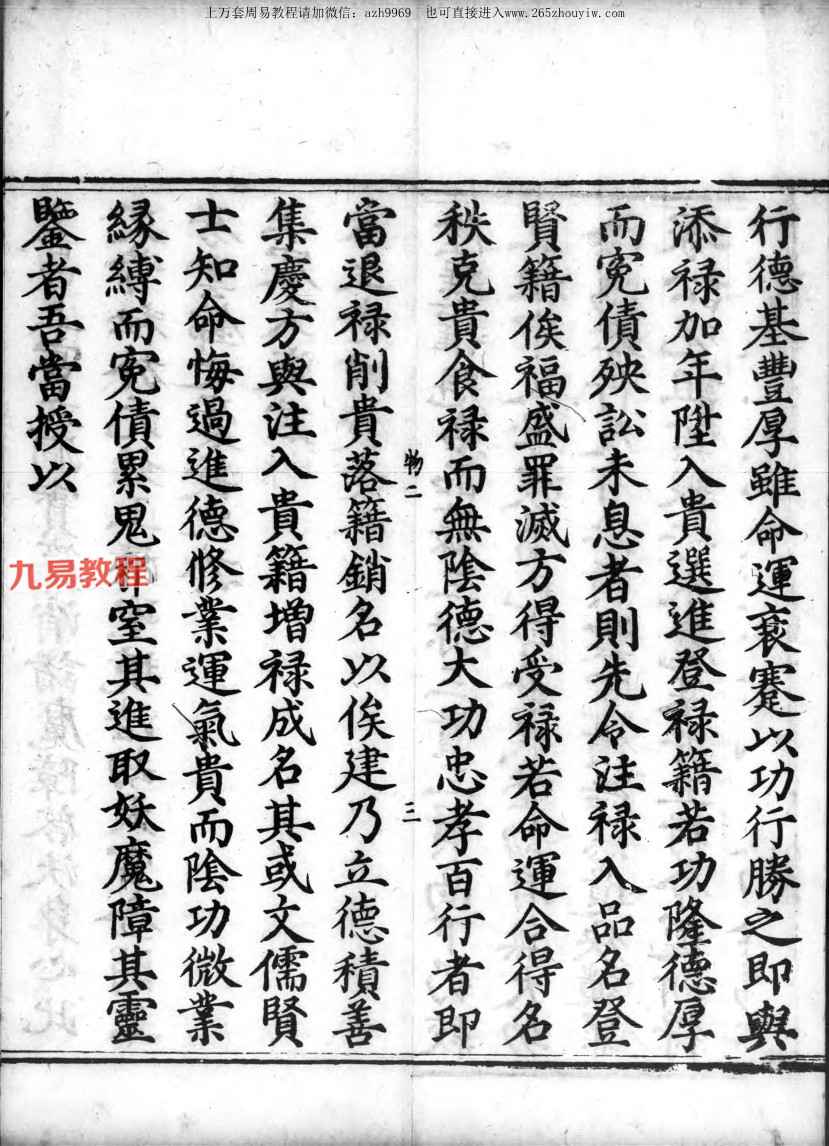 上万套周易教程请加微信：azh9969 也可直接进入www.265zhouyiw.com
行德基豐厚雖命運衰蹇以功行勝之即與
添禄加年陞入貴選進登禄籍若功隆德厚
而寃債殃訟未息者則先令注禄入品名登
賢籍俟福盛罪滅方得受禄若命運合得名
秩克貴食禄而無陰德大功忠孝百行者即
物二 三
當退禄削貴落籍銷名以俟建乃立德積善
集慶方與注入貴籍增禄成名其或文儒賢
士知命悔過進德修業運氣貴而陰功微業
緣縛而寃債累鬼窒其進取妖魔障其靈
鑒者吾當授以
九易教程